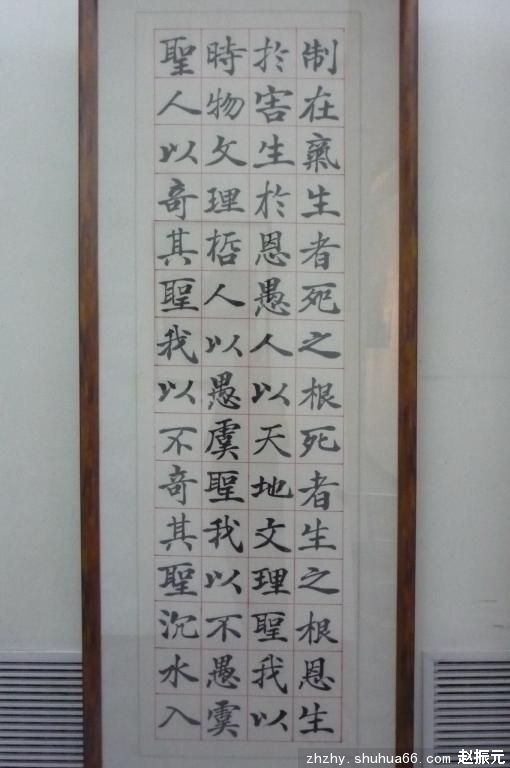 制在氣生者死之根死者生之根恩生
於害生於恩愚人以天地文理聖我以
時物文理哲人以愚虞聖我以不愚虞
聖人以奇其聖我以不奇其聖沉水入
zhzhy.shuhua66.com 赵振元